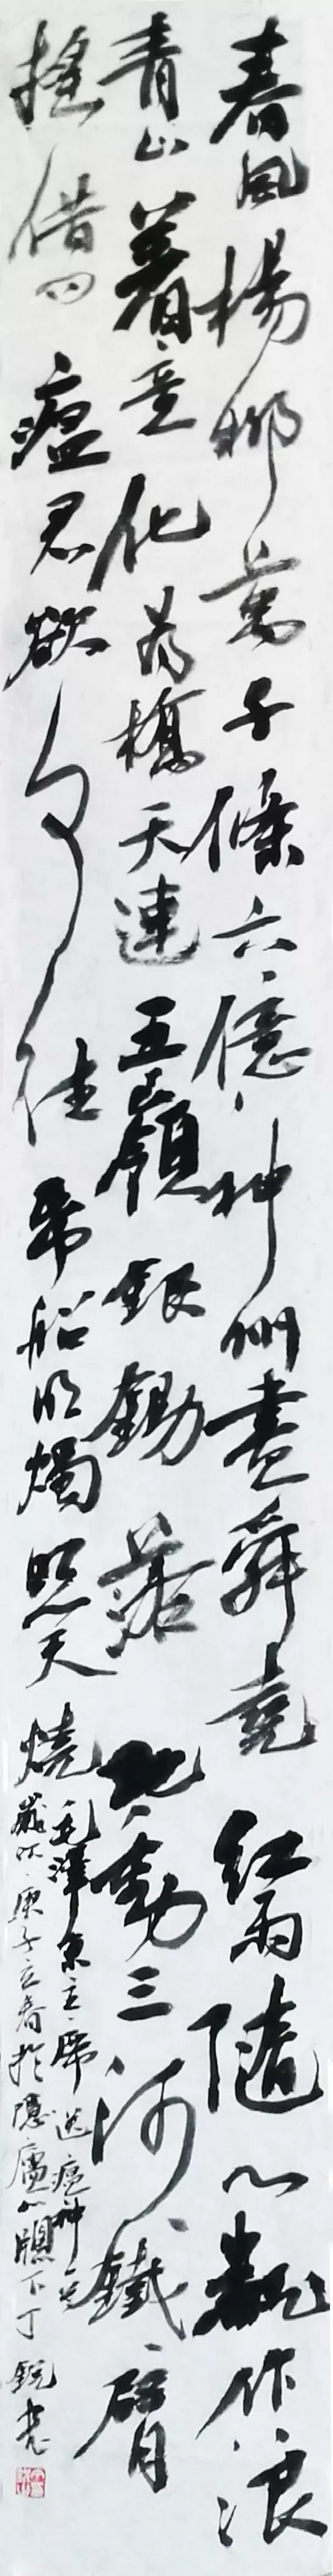 春風楊柳萬千條六億神州盡舜堯紅雨隨心翻作浪
青山著意化為橋天連五嶺銀鋤落地動三河鐵臂
搖借問瘟君欲何往紙船明燭照天燒
毛澤東主席送瘟神之
庚子立春於隱廬心窗下丁銳書